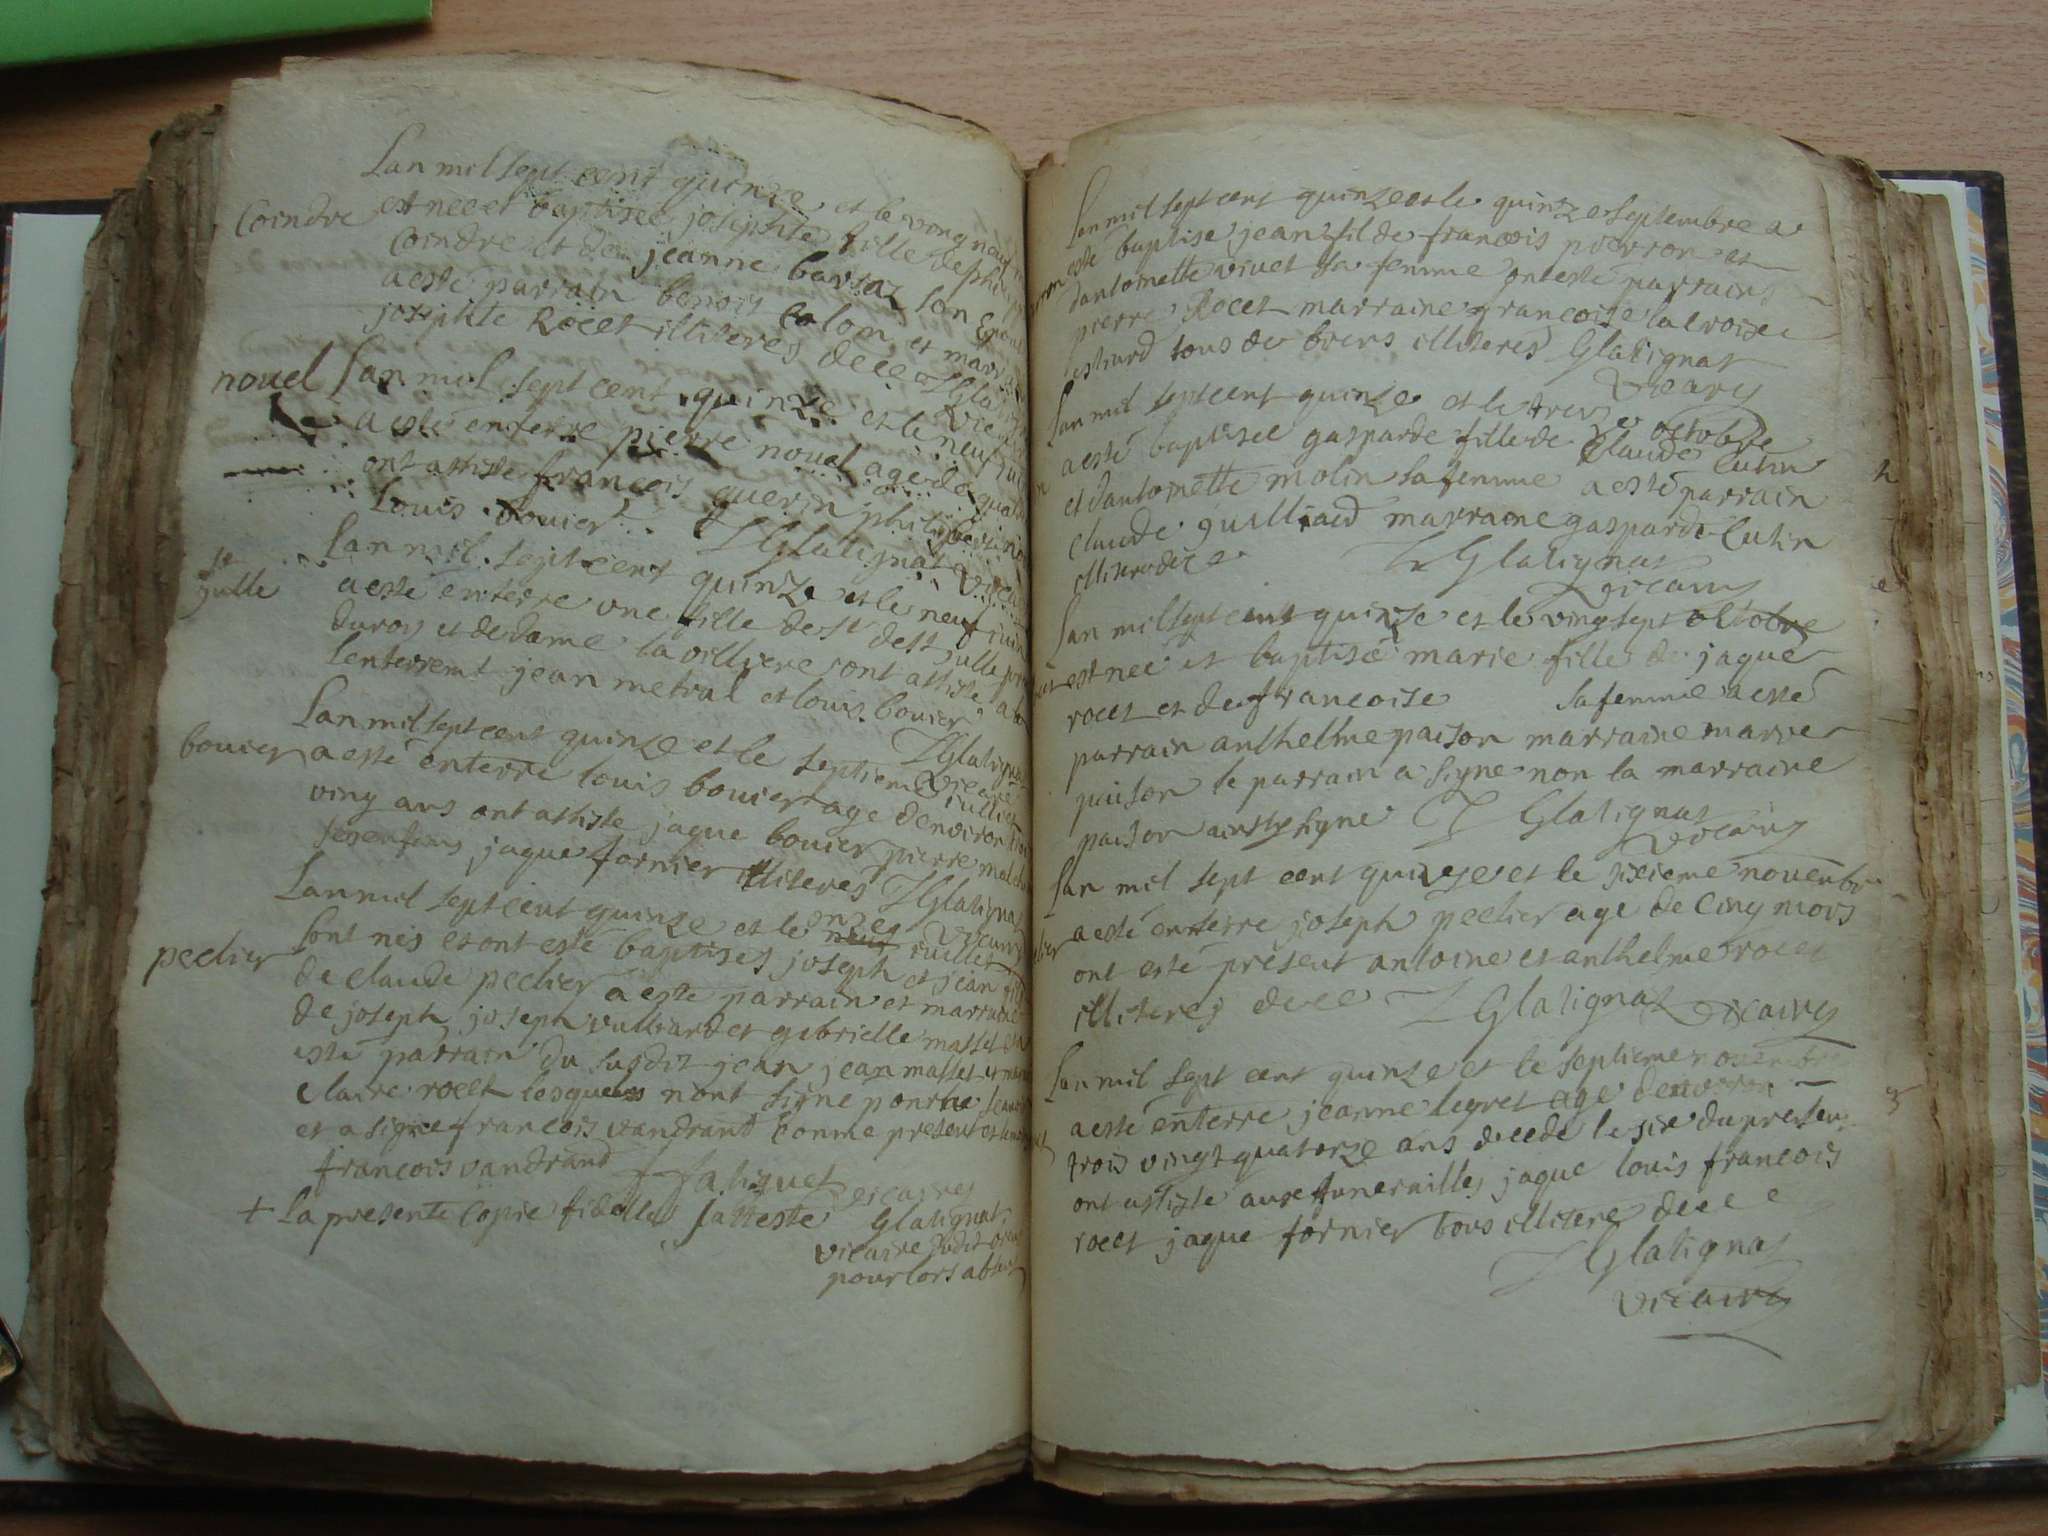 Lan mil sept cent quinze et le vingneuf
Coindre est nee et baptisee josephte fille de phi
Coindre et de jeanne barsaz son Epou
a esté parrain benois Calom et marr
josephte Rocet illiteres de ce JGlati
nouel Lan mil sept cent quinze et le neuf
a esté enterre pierre nouel age de quat
ont assiste francois guerin philibert
Louis bouier JGlatignat vicai
st julle Lan mil sept cent quinze et le neuf juin
a esté enterre une fille de sr de st julle
duroy et de dame la villiere ont assiste a
lenterremt jean metral et louis bouier
JGlatignat
Vicaire
Lan mil sept cent quinze et le septiem juillet
bouier a esté enterre louis bouier age denviron
ving ans ont assiste jaque bouier pierre
ses enfans jaque fornier illiteres JGlatignat
Vicaire
Lan mil sept cent quinze et le neuf onze juillet
peclier sont nes et ont esté baptises joseph et jean fil
de Claude peclier a esté parrain et marraine
de joseph joseph vulliard et gabrielle masset
esté parrain du susdit jean jean masset et
Claire rocet lesquels nont signe pour ne
et a signe francois vandrand Comme present et
francois vandrand f faliquet vicaires
+ La presente Copie fidelle jatteste Glatignat
vicaire dudit
pour lors absent
Lan mil sept cent quinze et le quinze septembre a
esté baptise jean fil de francois pierron et
dantoinette vivet sa femme ont esté parrains
pierre Rocet marraine francoise lacroix
tous de brens illiteres Glatignat
vicaire
Lan mil sept cent quinze et le treize octobre
a esté baptisee gasparde fille de Claude Cutin
et dantoinette molin sa femme a esté parrain
Claude guilliard marraine gasparde Cutin
illitere de ce J Glatignat
vicaire
Lan mil sept cent quinze et le vingsept octobre
est neé et baptisé marie fille de jaque
rocet et de francoise sa femme a esté
parrain anthelme paison marraine marie
paison le parrain a signe non la marraine
paison ainsy signe J Glatignat
vicaire
Lan mil sept cent quinze et le sixieme novembre
a esté enterre joseph peclier age de Cinq mois
ont esté présent antoine et anthelme rocet
illiteres de ce J Glatignat vicaire
Lan mil sept cent quinze et le septieme novembre
a esté enterre jeanne legret age denviron
trois vingt quatorze ans decede le six du present
ont assiste aux funerailles jaque louis francois
rocet jaque fornier tous illitere de ce
J Glatignat
vicaire